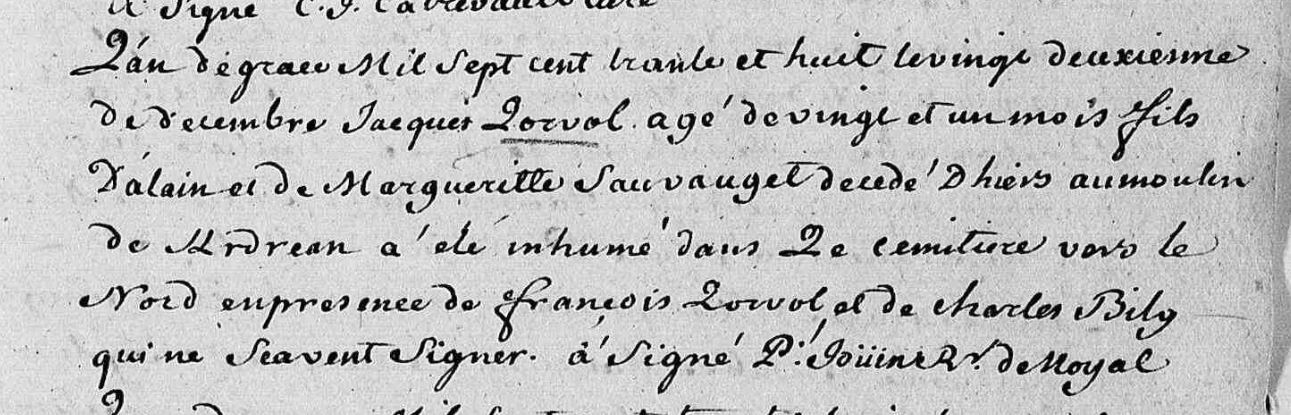 a Signé C. J.
L'án dégrace Mil Sept cent trante et huit levingt deuxiesme
de decembre Jacques Lorvol agé devingt et un mois fils
D'alain et de Margueritte Sauvauget decedé D'hiers aumoulin
de Krdrean a été inhumé dans Le cemitiere vers le
Nord enpresence de françois Lorvol et de charles Bily
qui ne Scavent Signer. á Signé P. Joüin Rr. de Noyal